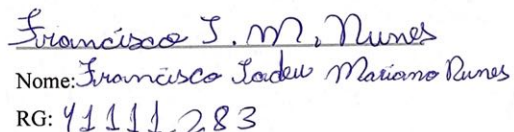 Francisco T. M. Nunes
Nome: Francisco Tadeu Mariano Nunes
RG: 41111283